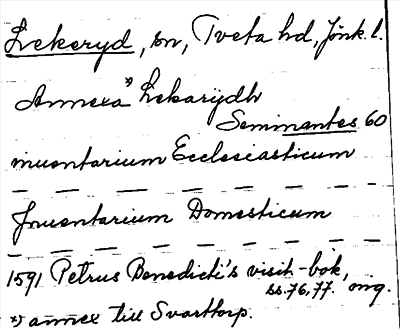 Lekeryd, sn, Tveta hd, Jönk. l.
Annexa *) Lekarÿdh
Seminantes 60
inuentarium Ecclesiasticum
Jnuentarium Domesticum
1591 Petrus Benedicti's visit-bok,
ss. 76, 77. omg.
*) annex till Svarttorp.